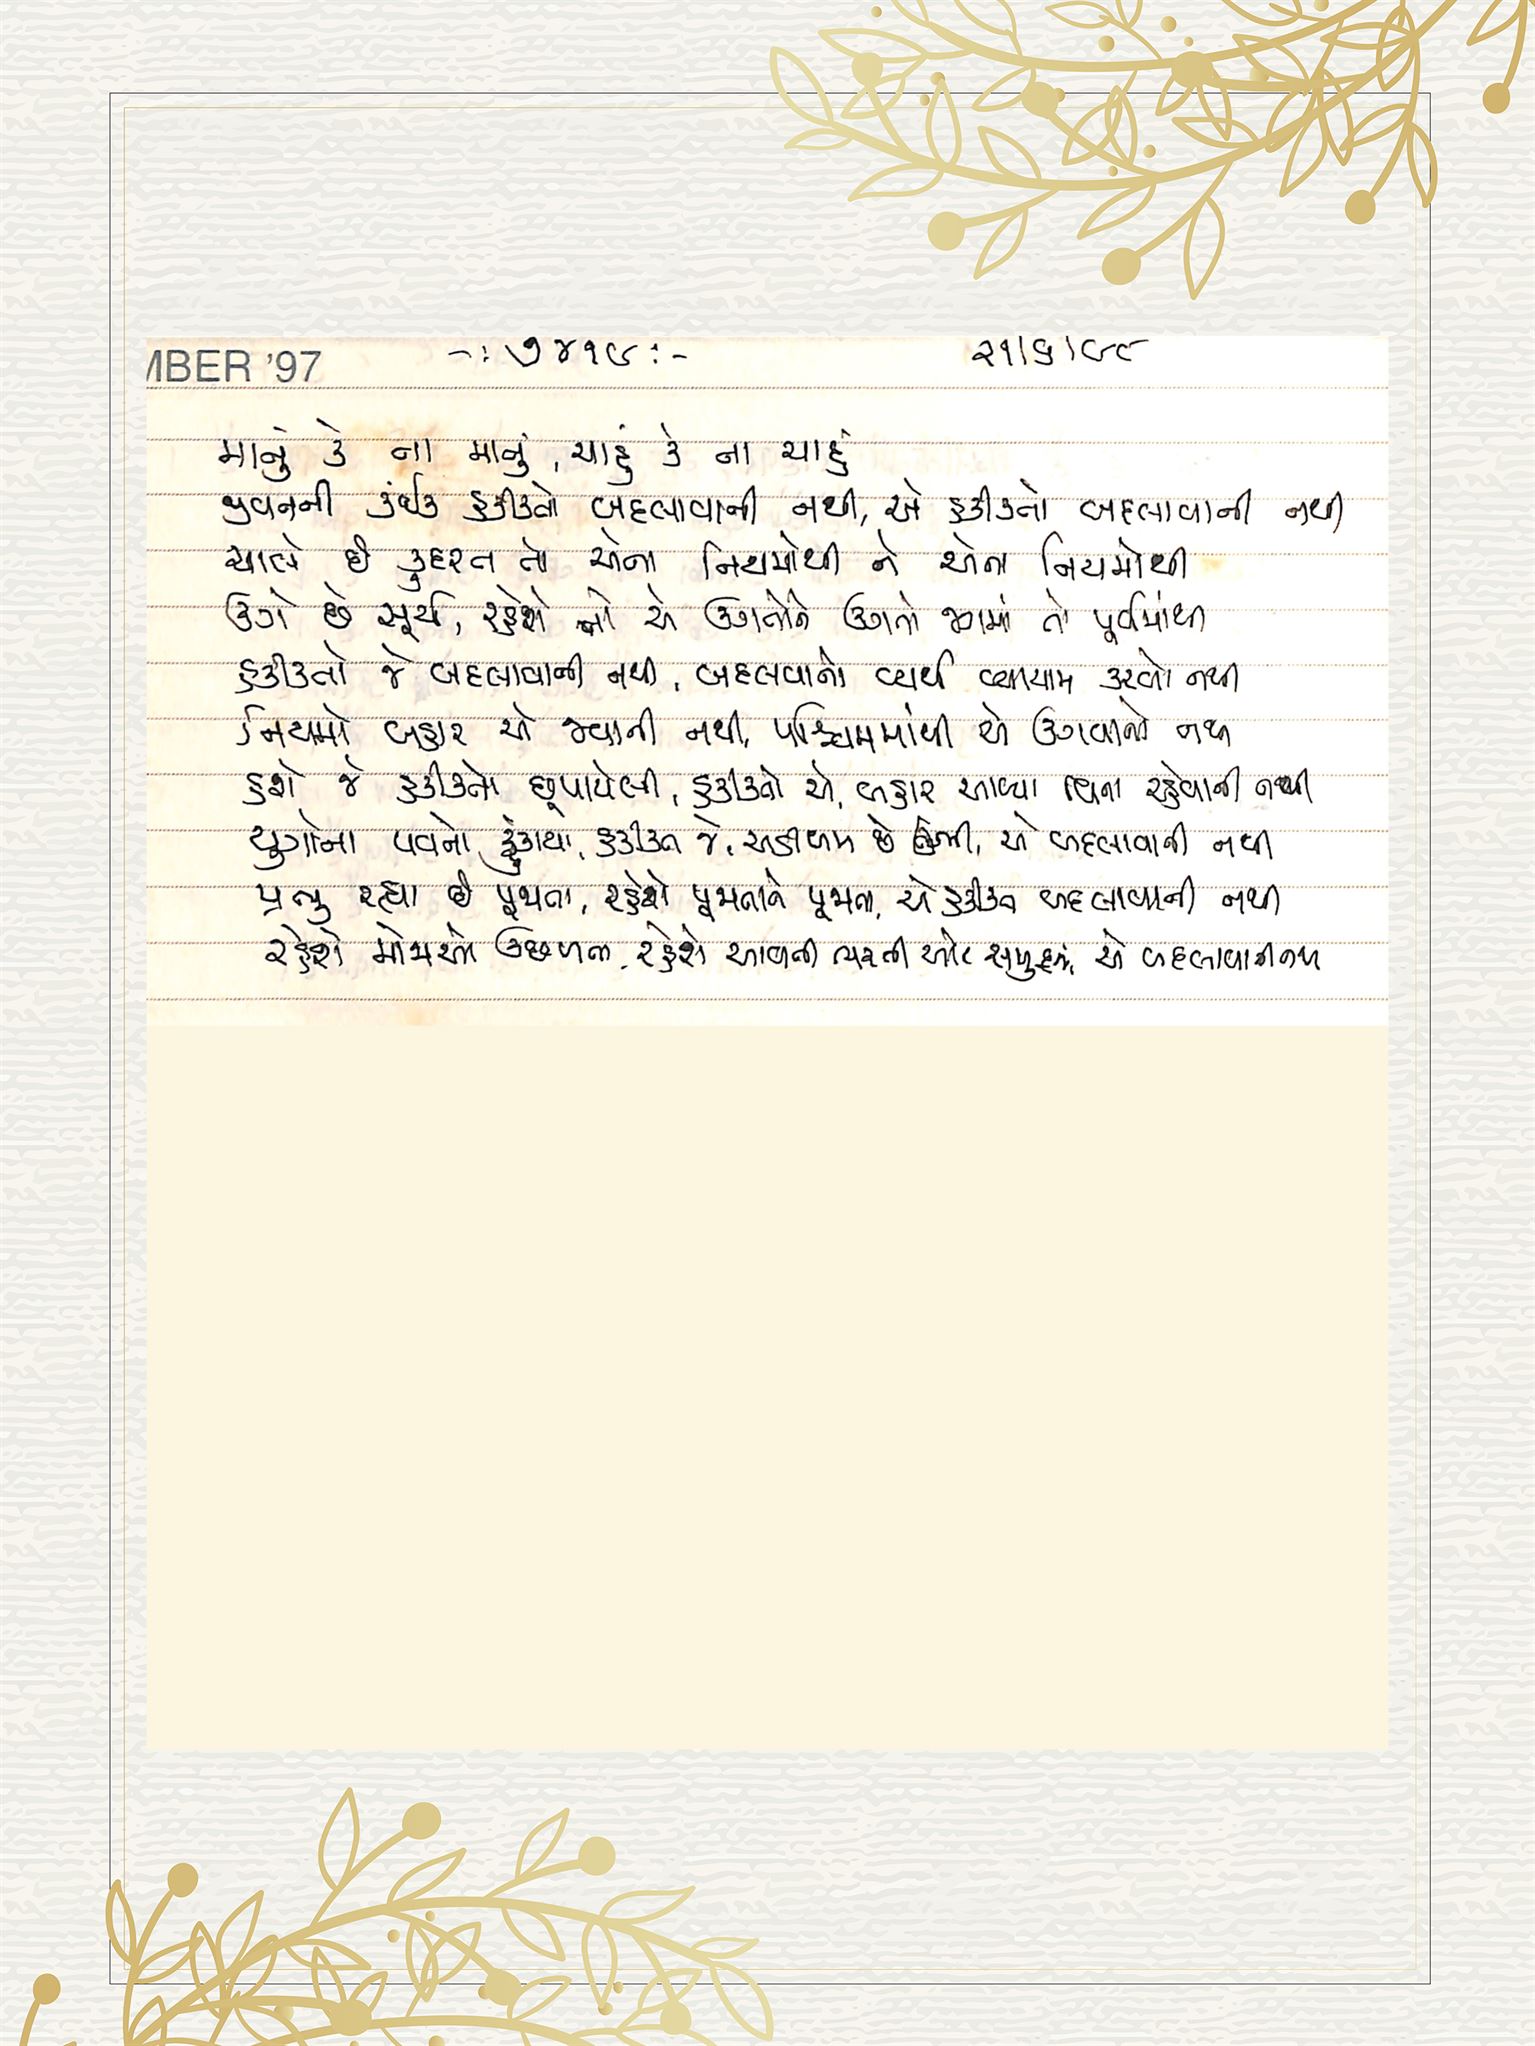 MBER '97 -: ૭૪૧૯ :- ૨૧/૬/૯૮
માનું કે ના માનું, ચાહું કે ના ચાહું
જીવનની કંઈક હકીકતો બદલાવાની નથી, એ હકીકતો બદલાવાની નથી
ચાલે છે કુદરત તો એના નિયમોથી ને એના નિયમોથી
ઉગે છે સૂર્ય, રહેશે એ ઉગતોને ઉગતો જગમાં તો પૂર્વમાંથી
હકીકતો જે બદલાવાની નથી, બદલવાનો વ્યર્થ વ્યાયામ કરવો નથી
નિયમો બહાર એ જવાની નથી, પશ્ચિમમાંથી એ ઉગવાનો નથી
હશે જે હકીકતો છૂપાયેલી, હકીકતો એ, બહાર આવ્યા વિના રહેવાની નથી
યુગોના પવનો ફૂંકાયા, હકીકત જે, અડીખમ છે ઊભી, એ બદલાવાની નથી
પ્રભુ રહ્યા છે પૂજાતા, રહેશે પૂજાતાને પૂજાતા, એ હકીકત બદલાવાની નથી
રહેશે મોજાઓ ઉછળતા, રહેશે આવતી ભરતી ઓટ સમુદ્રમાં, એ બદલાવાની નથી